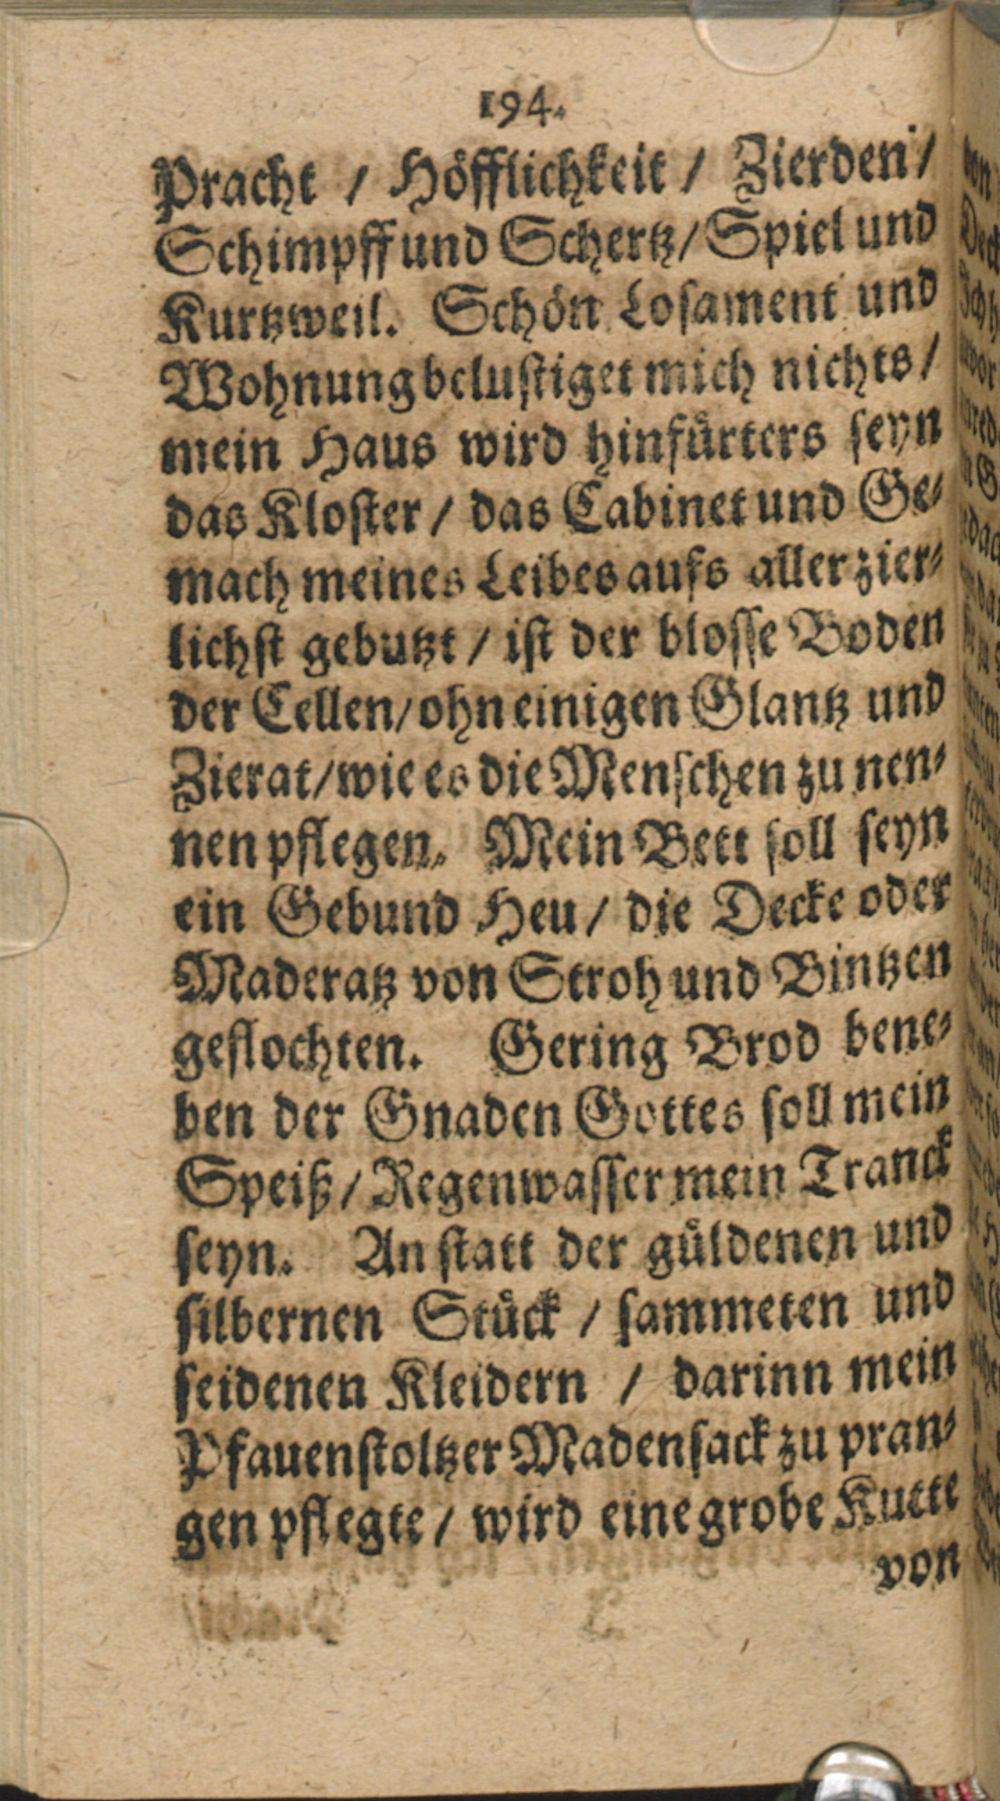 194.
Pracht / Höfflichkeit / Zierden /
Schimpff und Schertz / Spiel und
Kurtzweil. Schön Losament und
Wohnung belustiget mich nichts /
mein Haus wird hinfürters seyn
das Kloster / das Cabinet und Ge-
mach meines Leibes aufs aller zier-
lichst gebutzt / ist der blosse Boden
der Cellen / ohn einigen Glantz und
Zierat / wie es die Menschen zu nen-
nen pflegen. Mein Bett soll seyn
ein Gebund Heu / die Decke oder
Maderatz von Stroh und Bintzen
geflochten. Gering Brod bene-
ben der Gnaden Gottes soll mein
Speiß / Regenwasser mein Tranck
seyn. An statt der güldenen und
silbernen Stück / sammeten und
seidenen Kleidern / darinn mein
Pfauenstoltzer Madensack zu pran-
gen pflegte / wird eine grobe Kutte
von